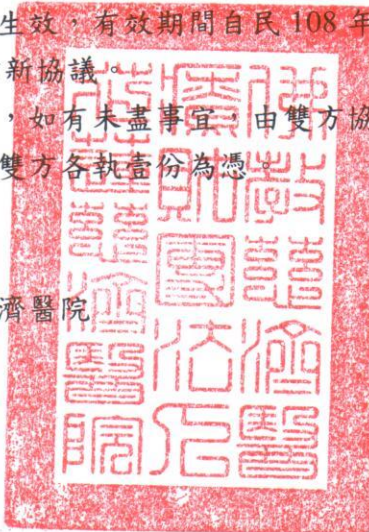 生效，有效期間自民 108 年
新協議。
，如有未盡事宜，由雙方協
雙方各執壹份為憑。
濟醫院
佛教慈濟醫
療財團法人
花蓮慈濟醫院